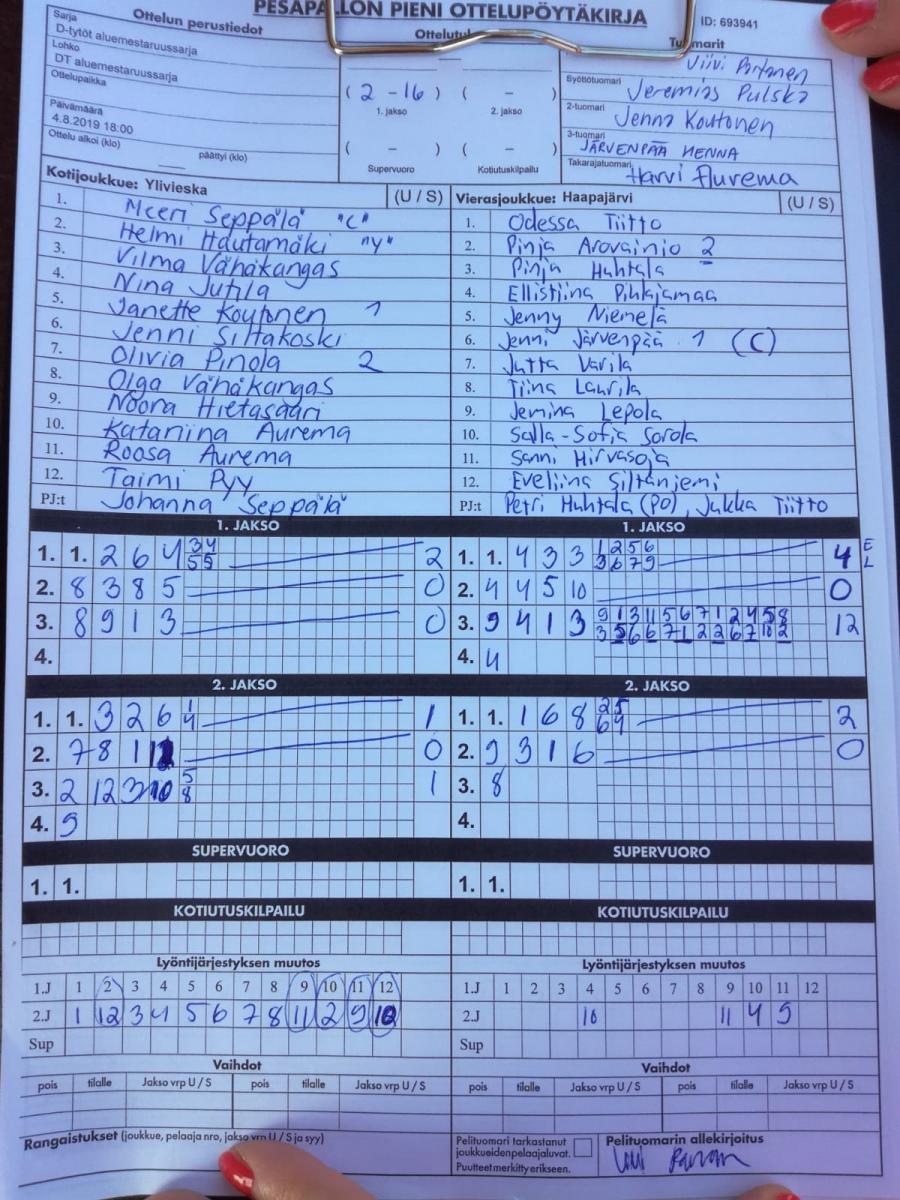 PESÄPALLON PIENI OTTELUPÖYTÄKIRJA
ID: 693941
Ottelun perustiedot
Sarja
D-tytöt aluemestaruussarja
Lohko
DT aluemestaruussarja
Ottelupaikka
Päivämäärä
4.8.2019 18:00
Ottelu alkoi (klo) päättyi (klo)
( 2 - 16 ) ( - )
1. jakso 2. jakso
( - ) ( - )
Supervuoro Kotiutuskilpailu
Viivi
Syöttötuomari Jeremias Pulska
2-tuomari Jenna Koutonen
3-tuomari JÄRVENPÄÄ HENNA
Takarajatuomari Harvi Aurema
Kotijoukkue: Ylivieska (U / S)
1. Meeri Seppälä "C"
2. Helmi Hautamäki "V"
3. Vilma Vähäkangas
4. Nina Jutila
5. Janette Koutonen 1
6. Jenni Siltakoski
7. Olivia Pinola 2
8. Olga Vähäkangas
9. Noora Hietasaari
10. Katariina Aurema
11. Roosa Aurema
12. Taimi Pyy
PJ:t Johanna Seppälä
Vierasjoukkue: Haapajärvi (U / S)
1. Odessa Tiitto
2. Pinja Arovainio 2
3. Pinja Huhtala
4. Ellistiina Pihlajamaa
5. Jenny Niemelä
6. Jenni Järvenpää 1 (C)
7. Jutta Varila
8. Tiina Laurila
9. Jemina Lepola
10. Salla-Sofia Sorola
11. Sanni Hirvasoja
12. Eveliina Siltaniemi
PJ:t Petri Huhtala (PO), Jukka Tiitto
1. JAKSO
1. 1. 2 6 4 34 55 2
2. 8 3 8 5 0
3. 8 9 1 3 0
4.
1. JAKSO
1. 1. 4 3 3 1 2 5 6 3 6 7 9 4 E L
2. 4 4 5 10 0
3. 9 4 1 3 9 1 3 11 5 6 7 1 2 4 5 8 3 5 6 6 7 1 2 2 6 7 10 2 12
4. 4
2. JAKSO
1. 1. 3 2 6 1 4 1
2. 7 8 1 0
3. 2 12 3 10 5 8 1
4. 9
2. JAKSO
1. 1. 1 6 8 25 64 2
2. 9 3 1 6 0
3. 8
4.
SUPERVUORO
1. 1.
SUPERVUORO
1. 1.
KOTIUTUSKILPAILU
KOTIUTUSKILPAILU
Lyöntijärjestyksen muutos
1.J 1 2 3 4 5 6 7 8 9 10 11 12
2.J 1 12 3 4 5 6 7 8 11 2 9 10
Sup
Lyöntijärjestyksen muutos
1.J 1 2 3 4 5 6 7 8 9 10 11 12
2.J 10 11 4 9
Sup
Vaihdot
pois tilalle Jakso vrp U / S pois tilalle Jakso vrp U / S
Vaihdot
pois tilalle Jakso vrp U / S pois tilalle Jakso vrp U / S
Rangaistukset (joukkue, pelaaja nro, jakso vrp U / S ja syy)
Pelituomari tarkastanut
joukkueiden pelaajaluvat.
Puutteet merkitty erikseen.
Pelituomarin allekirjoitus